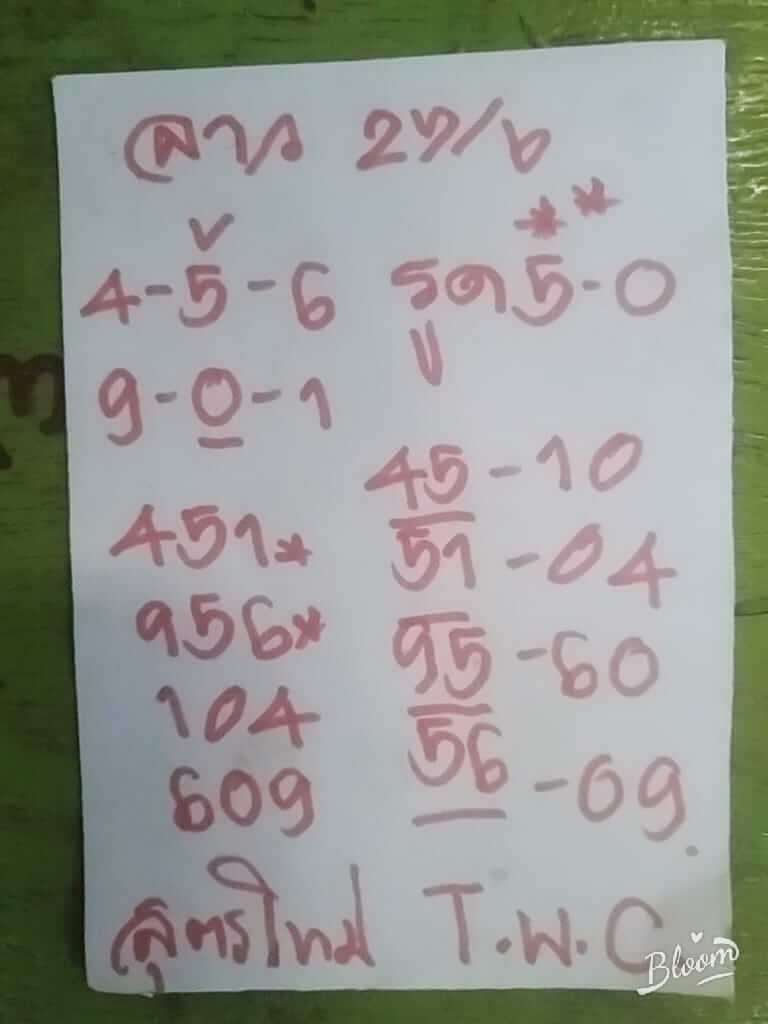 ลาว 27/6
4-5-6 รูด 5-0
9-0-1
45-10
451* 51-04
956* 95-60
104 56-09.
609
สูตรใหม่ T.W.C
Bloom